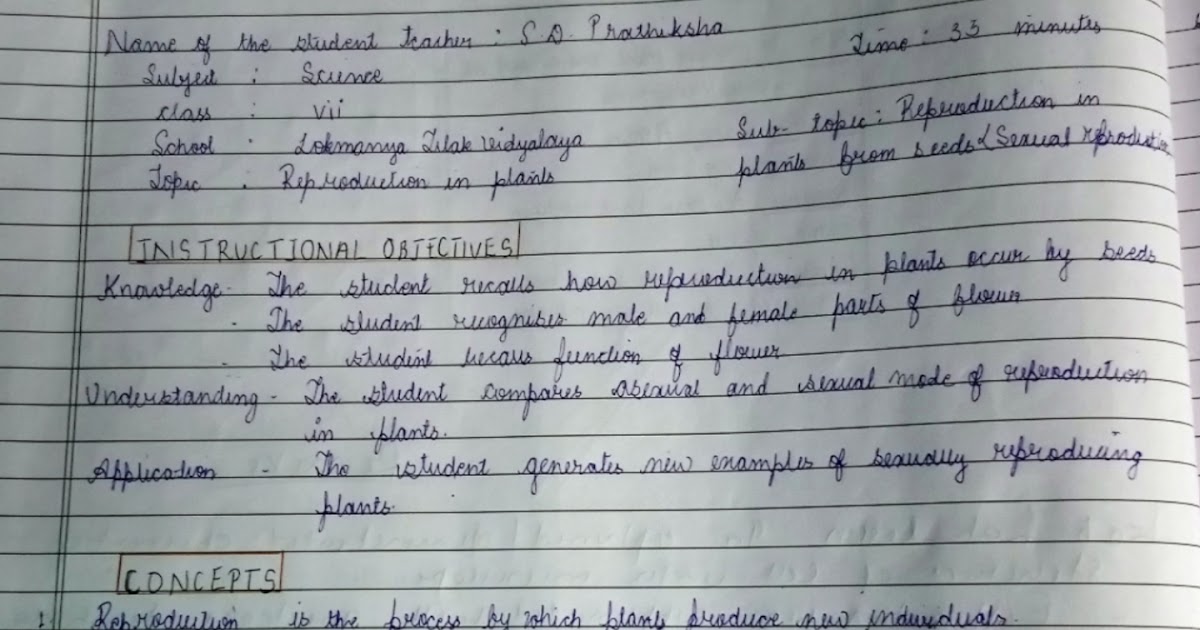 Name of the student teacher : S.D. Prathiksha
Time : 35 minutes
Subject : Science
class : vii
School : Lokmanya Tilak vidyalaya
Sub-topic : Reproduction in
Topic : Reproduction in plants
plants from seeds (Sexual reproduction
INSTRUCTIONAL OBJECTIVES
Knowledge - The student recalls how reproduction in plants occur by seeds
- The student recognises male and female parts of flower
- The student recalls function of flower
Understanding - The student compares asexual and sexual mode of reproduction
in plants.
Application - The student generates new examples of sexually reproducing
plants.
CONCEPTS
1. Reproduction is the process by which plants produce new individuals.